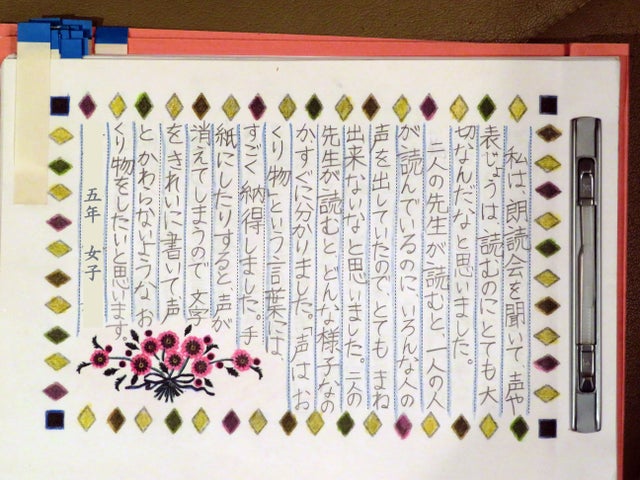 私は、朗読会を聞いて、声や
表じょうは、読むのにとても大
切なんだなと思いました。
二人の先生が読むと、一人の人
が読んでいるのに、いろんな人の
声を出していたので、とてもまね
出来ないなと思いました。二人の
先生が読むと、どんな様子なの
か、すぐに分かりました。「声はお
くり物」という言葉には、
すごく納得しました。手
紙にしたりすると、声が
消えてしまうので、文字
をきれいに書いて声
とかわらないような、お
くり物をしたいと思います。
五年 女子